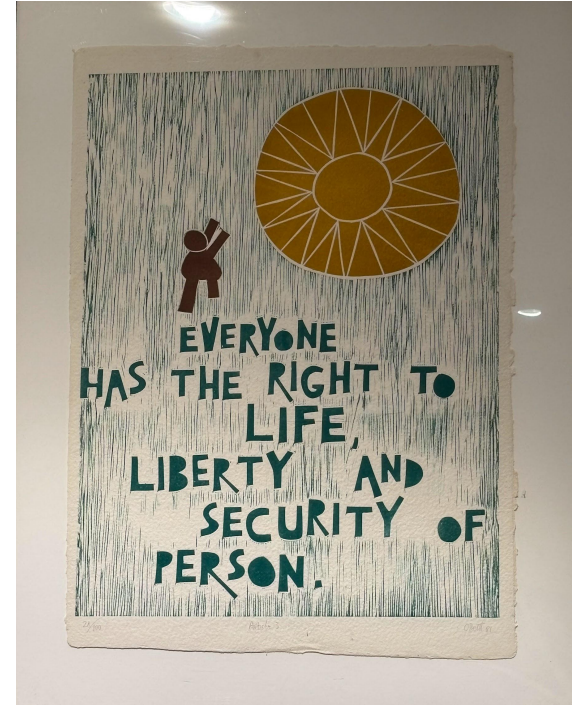 EVERYONE
HAS THE RIGHT TO
LIFE,
LIBERTY AND
SECURITY OF
PERSON.